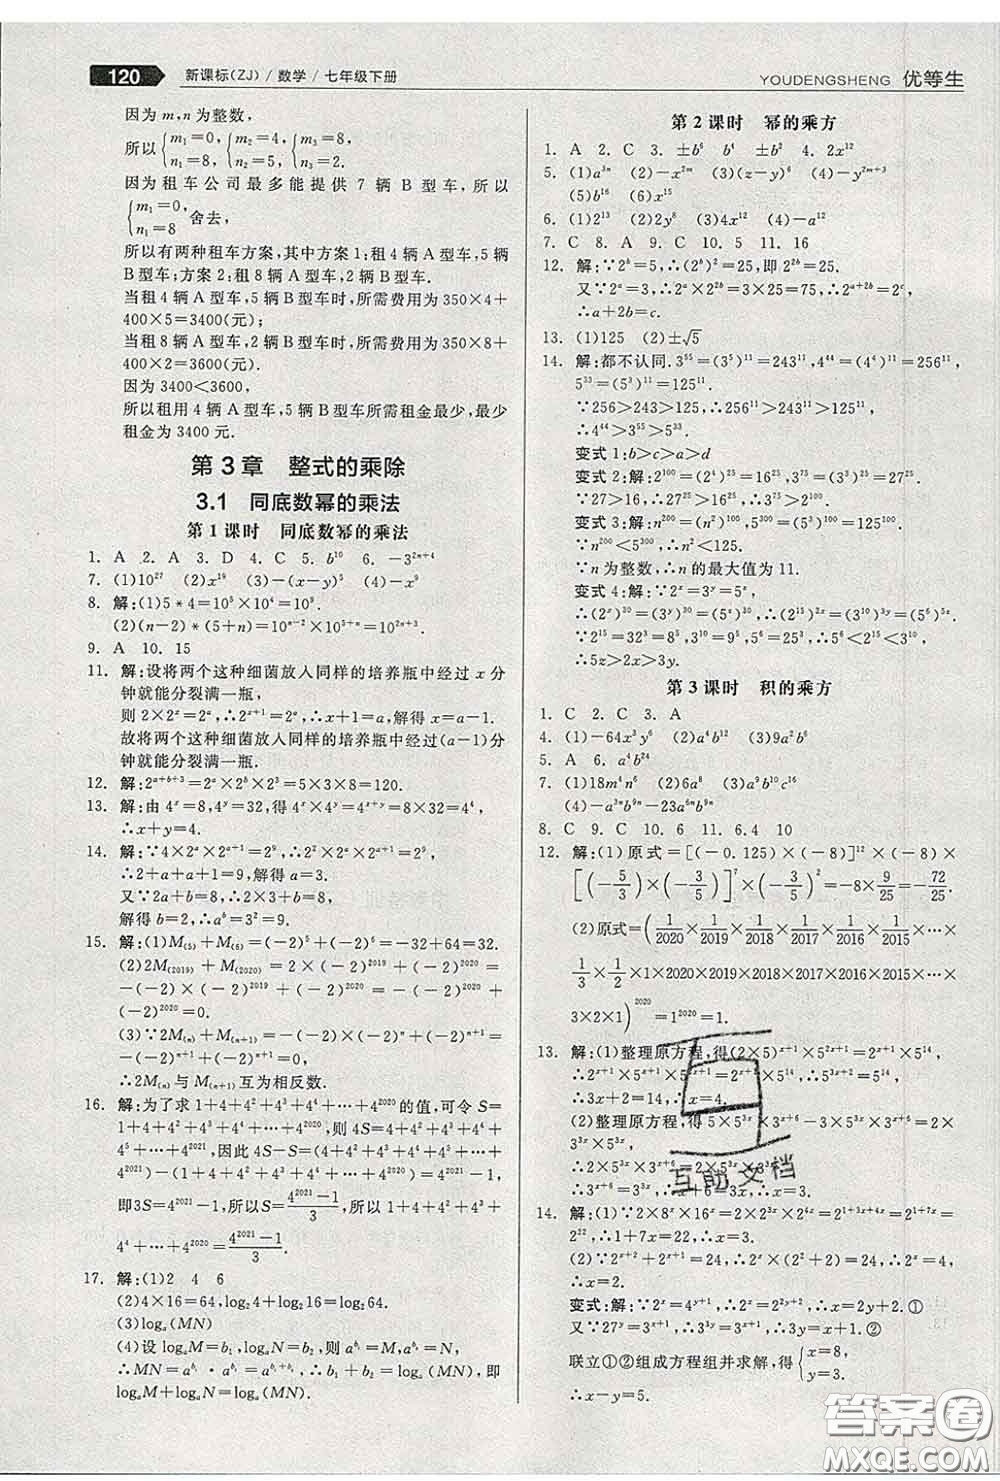 120 新课标(ZJ)/数学/七年级下册
YOUDENGSHENG 优等生
因为m,n为整数,
所以{m₁=0, n₁=8, {m₂=4, n₂=5, {m₃=8, n₃=2.
因为租车公司最多能提供7辆B型车,所以
{m₁=0, n₁=8 舍去,
所以有两种租车方案,其中方案1:租4辆A型车,5辆
B型车;方案2:租8辆A型车,2辆B型车.
当租4辆A型车,5辆B型车时,所需费用为350×4+
400×5=3400(元);
当租8辆A型车,2辆B型车时,所需费用为350×8+
400×2=3600(元).
因为3400<3600,
所以租用4辆A型车,5辆B型车所需租金最少,最少
租金为3400元.
第3章 整式的乘除
3.1 同底数幂的乘法
第1课时 同底数幂的乘法
1. A 2. A 3. D 4. C 5. b¹⁰ 6. −3²ⁿ⁺⁴
7. (1)10²⁷ (2)x¹⁹ (3)−(x−y)⁵ (4)−x⁹
8. 解:(1)5*4=10⁵×10⁴=10⁹.
(2)(n−2)*(5+n)=10ⁿ⁻²×10⁵⁺ⁿ=10²ⁿ⁺³.
9. A 10. 15
11. 解:设将两个这种细菌放入同样的培养瓶中经过x分
钟就能分裂满一瓶,
则2×2ˣ=2ᵃ,∴2ˣ⁺¹=2ᵃ,∴x+1=a,解得x=a−1.
故将两个这种细菌放入同样的培养瓶中经过(a−1)分
钟就能分裂满一瓶.
12. 解:2ᵃ⁺ᵇ⁺³=2ᵃ×2ᵇ×2³=5×3×8=120.
13. 解:由4ˣ=8,4ʸ=32,得4ˣ×4ʸ=4ˣ⁺ʸ=8×32=4⁴,
∴x+y=4.
14. 解:∵4×2ᵃ×2ᵃ⁺¹=2⁹,∴2²×2ᵃ×2ᵃ⁺¹=2⁹,
∴2+a+a+1=9,解得a=3.
又∵2a+b=8,∴2×3+b=8,
解得b=2,∴aᵇ=3²=9.
15. 解:(1)M₍₅₎+M₍₆₎=(−2)⁵+(−2)⁶=−32+64=32.
(2)2M₍₂₀₁₉₎+M₍₂₀₂₀₎=2×(−2)²⁰¹⁹+(−2)²⁰²⁰=
−(−2)×(−2)²⁰¹⁹+(−2)²⁰²⁰=−(−2)²⁰²⁰+
(−2)²⁰²⁰=0.
(3)∵2M₍ₙ₎+M₍ₙ₊₁₎=−(−2)×(−2)ⁿ+(−2)ⁿ⁺¹=
−(−2)ⁿ⁺¹+(−2)ⁿ⁺¹=0,
∴2M₍ₙ₎与M₍ₙ₊₁₎互为相反数.
16. 解:为了求1+4+4²+4³+4⁴+…+4²⁰²⁰的值,可令S=
1+4+4²+4³+4⁴+…+4²⁰²⁰,则4S=4+4²+4³+4⁴+
4⁵+…+4²⁰²¹,因此4S−S=(4+4²+4³+4⁴+4⁵+…+
4²⁰²¹)−(1+4+4²+4³+4⁴+…+4²⁰²⁰)=4²⁰²¹−1,
即3S=4²⁰²¹−1,所以S=(4²⁰²¹−1)/3,所以1+4+4²+4³+
4⁴+…+4²⁰²⁰=(4²⁰²¹−1)/3.
17. 解:(1)2 4 6
(2)4×16=64,log₂4+log₂16=log₂64.
(3)logₐ(MN)
(4)设logₐM=b₁,logₐN=b₂,则a^b₁=M,a^b₂=N,
∴MN=a^b₁·a^b₂=a^(b₁+b₂),∴b₁+b₂=logₐ(MN),即
logₐM+logₐN=logₐ(MN).
第2课时 幂的乘方
1. A 2. C 3. ±b⁶ b⁴ ±b² 4. 2x¹²
5. (1)a³ⁿ (2)−x⁶ (3)(z−y)⁶ (4)−y²ᵐ⁺³
(5)b¹⁶ (6)x⁴
6. (1)2¹³ (2)2y⁸ (3)4x¹²
7. C 8. A 9. C 10. 5 11. 16
12. 解:∵2ᵇ=5,∴(2ᵇ)²=25,即2²ᵇ=25.
又∵2ᵃ=2,∴2ᵃ×2²ᵇ=2×25=50,∴2ᵃ⁺²ᵇ=2ᶜ,
∴a+2b=c.
13. (1)125 (2)±√5
14. 解:都不认同.3⁵⁵=(3⁵)¹¹=243¹¹,4⁴⁴=(4⁴)¹¹=256¹¹,
5³³=(5³)¹¹=125¹¹.
∵256>243>125,∴256¹¹>243¹¹>125¹¹,
∴4⁴⁴>3⁵⁵>5³³.
变式1:b>c>a>d
变式2:解:2¹⁰⁰=(2⁴)²⁵=16²⁵,3⁷⁵=(3³)²⁵=27²⁵.
∵27>16,∴27²⁵>16²⁵,∴3⁷⁵>2¹⁰⁰.
变式3:解:n²⁰⁰=(n²)¹⁰⁰,5³⁰⁰=(5³)¹⁰⁰=125¹⁰⁰.
∵n²⁰⁰<5³⁰⁰,∴n²<125.
∵n为整数,∴n的最大值为11.
变式4:解:∵2ˣ=3ʸ=5ᶻ,
∴(2ˣ)³⁰=(3ʸ)³⁰=(5ᶻ)³⁰,∴(2¹⁵)²ˣ=(3¹⁰)³ʸ=(5⁶)⁵ᶻ.
∵2¹⁵=32³=8⁵,3¹⁰=9⁵,5⁶=25³,∴2¹⁵<3¹⁰,2¹⁵>5⁶,
∴5z>2x>3y.
第3课时 积的乘方
1. C 2. C 3. A
4. (1)−64x³y⁶ (2)a⁴b¹² (3)9a⁴b¹⁰
5. A 6. a⁶b²⁴
7. (1)18m⁴n⁶ (2)6a⁸ (3)a⁹b¹⁰c¹⁶
(4)−a³ⁿb⁹ⁿ−23a⁶ⁿb⁹ⁿ
8. C 9. C 10. 6 11. 6.4 10
12. 解:(1)原式=[(−0.125)×(−8)]¹²×(−8)×
[(−5/3)×(−3/5)]⁷×(−3/5)²=−8×9/25=−72/25.
(2)原式=(1/2020×1/2019×1/2018×1/2017×1/2016×1/2015×…×
1/3×1/2×1×2020×2019×2018×2017×2016×2015×…×
3×2×1)²⁰²⁰=1²⁰²⁰=1.
13. 解:(1)整理原方程,得(2×5)ˣ⁺¹×5²ˣ⁺¹=2ˣ⁺¹×5¹⁴,
∴2ˣ⁺¹×5ˣ⁺¹×5²ˣ⁺¹=2ˣ⁺¹×5¹⁴,
∴3x+2=14,∴x=4.
(2)整理原方程,得5×5³ˣ×3ˣ⁺⁶−3×5³ˣ×3ˣ⁺⁶=2×
3³ˣ×5³ˣ,
∴2×5³ˣ×3ˣ⁺⁶=2×5³ˣ×3³ˣ,
∴3ˣ⁺⁶=3³ˣ,∴x+6=3x,∴x=3.
14. 解:(1)∵2×8ˣ×16ˣ=2×2³ˣ×2⁴ˣ=2¹⁺³ˣ⁺⁴ˣ=2¹⁺⁷ˣ=
2²²,∴1+7x=22,∴x=3.
(2)∵2ˣ⁺²+2ˣ⁺¹=24,∴2ˣ×(2²+2)=24,∴2ˣ=4,
∴x=2.
变式:解:∵2ˣ=4ʸ⁺¹,∴2ˣ=2²ʸ⁺²,∴x=2y+2.①
又∵27ʸ=3ˣ⁺¹,∴3³ʸ=3ˣ⁺¹,∴3y=x+1.②
联立①②组成方程组并求解,得{x=8, y=3,
∴x−y=5.
互助文档
答案圈
MXQE.COM